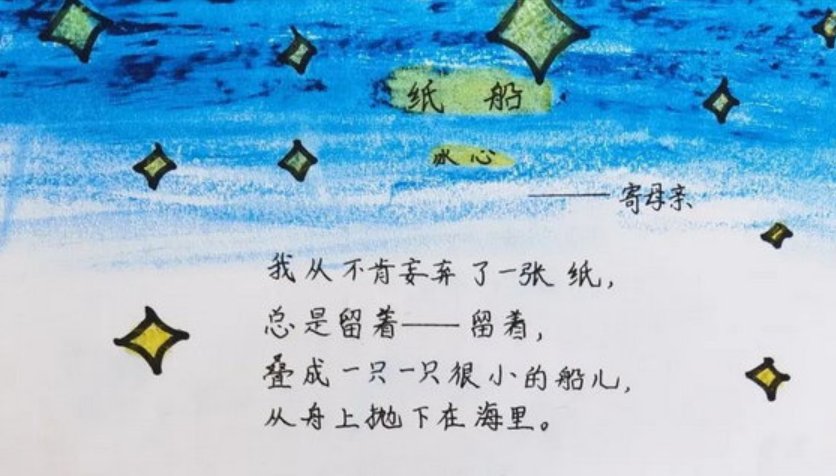 纸 船
冰心
——寄母亲
我从不肯妄弃了一张纸,
总是留着——留着,
叠成一只一只很小的船儿,
从舟上抛下在海里。